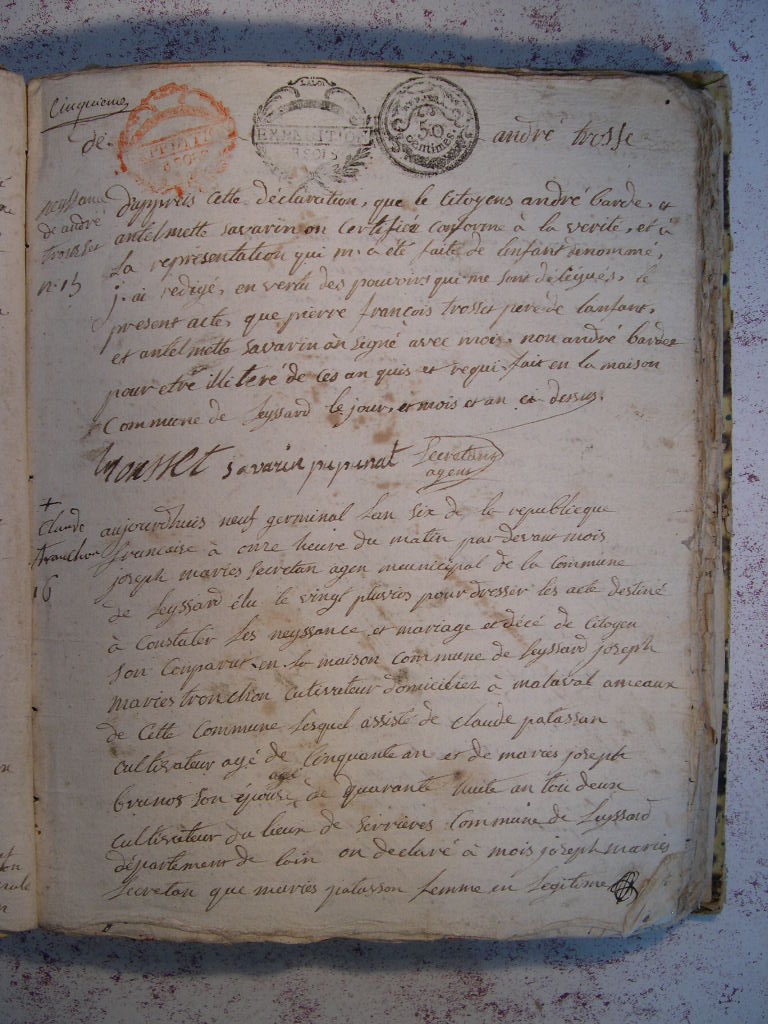 Cinquieme
50
centimes
de andré trosse
neyssance
de andré
trousset
n. 15
d'apprès cette déclaration, que le Citoyens andré barde, et
antelmette savarin on certifiéz conforme à la verité, et à
la representation qui m'a été faite de l'enfant denommé,
j'ai redigé, en vertu des pouvoirs qui me sont délégués, le
present acte, que pierre françois trosset pere de lanfant,
et antelmette savarin on signé avec mois, non andré bardet
pour etré illiteré de ces an quis et requi fait en la maison
Commune de Leyssard le jour, et mois et an ci dessus.
trousset savarin pupunat Secretan
agent
+
Claude
tranchon
16
aujourdhuis neuf germinal Lan six de la republicque
francaise à onze heure du matin par devant mois
joseph maries Secretan agen meunicipal de la commune
de Leyssard élu le vingt pluvios pour dresser les acte destiné
à Constater les neyssance et mariage et décé de Citoyen
Son Comparut en la maison commune de Leyssard joseph
maries tronchon cutivateur domicilier à malaval ameaux
de Cette Commune lesquel assisté de claude patassan
cultivateur agé de Cinquante an et de maries joseph
brunos Son épouse agé de quarante huite an tou deux
cultivateur du lieux de Serrieres Commune de Leyssard
département de lain on declaré à mois joseph maries
Secretan que maries patasson femme en Legitime